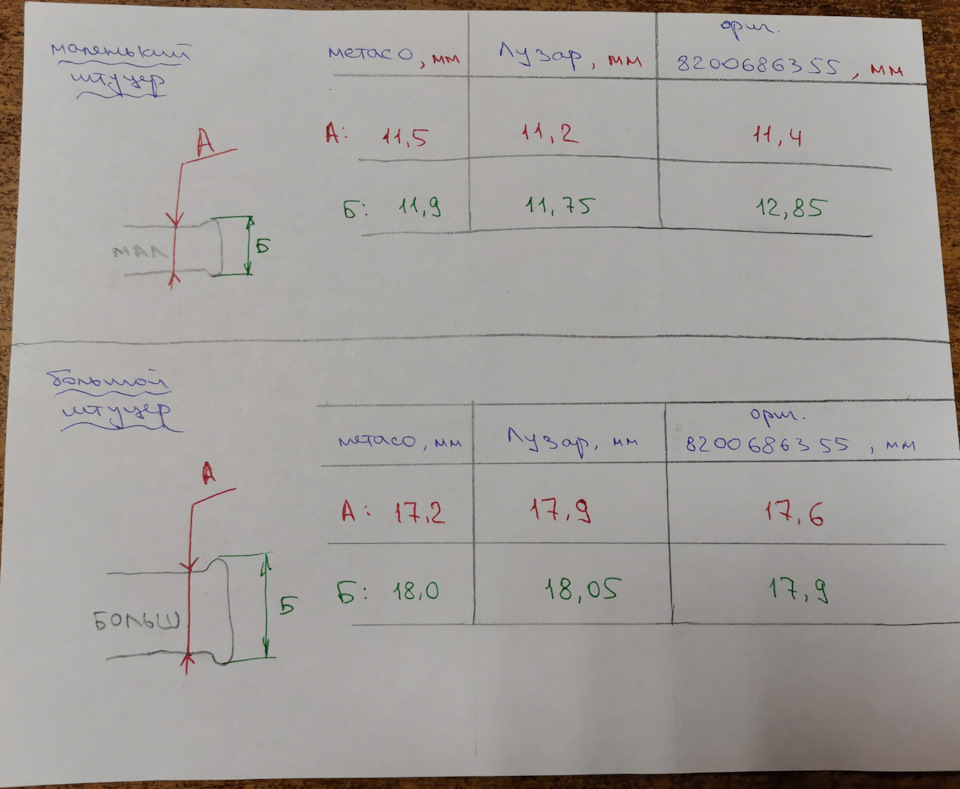 маленький
штуцер
метасо, мм
Лузар, мм
ориг.
8200686355, мм
А
А: 11,5
11,2
11,4
Б: 11,9
11,75
12,85
мал
Б
большой
штуцер
метасо, мм
Лузар, мм
ориг.
8200686355, мм
А
А: 17,2
17,9
17,6
Б: 18,0
18,05
17,9
БОЛЬШ
Б